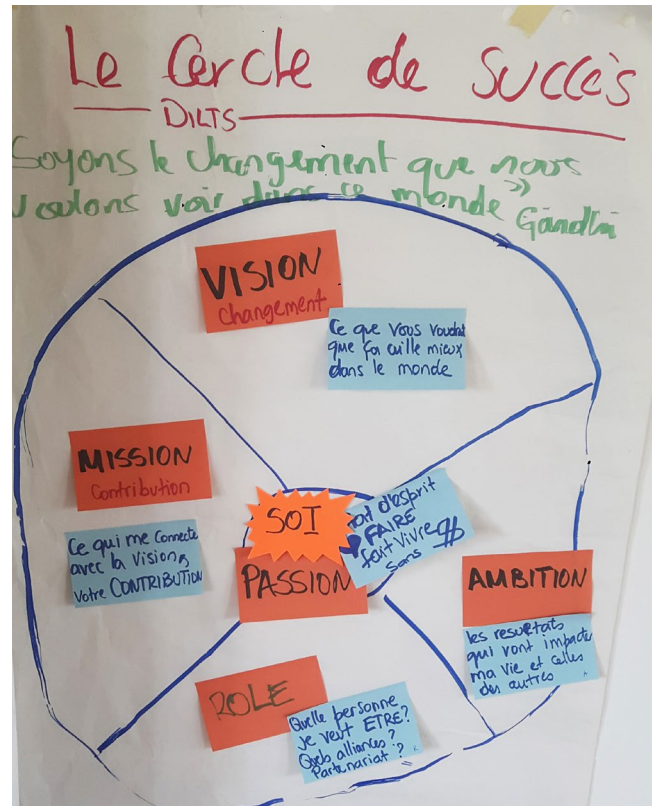 Le Cercle de Succès
DILTS
Soyons le changement que nous
voulons voir dans ce monde »
Gandhi
VISION
changement
Ce que vous voudrai
que ça aille mieux
dans le monde
MISSION
Contribution
Ce qui me connecte
avec la Vision,
votre CONTRIBUTION
SOI
PASSION
d'esprit
FAIRE
fait vivre
sans $$
AMBITION
les resultats
qui vont impacter
ma vie et celles
des autres
ROLE
Quelle personne
je veut ETRE?
Quels alliances?
Partenariat?